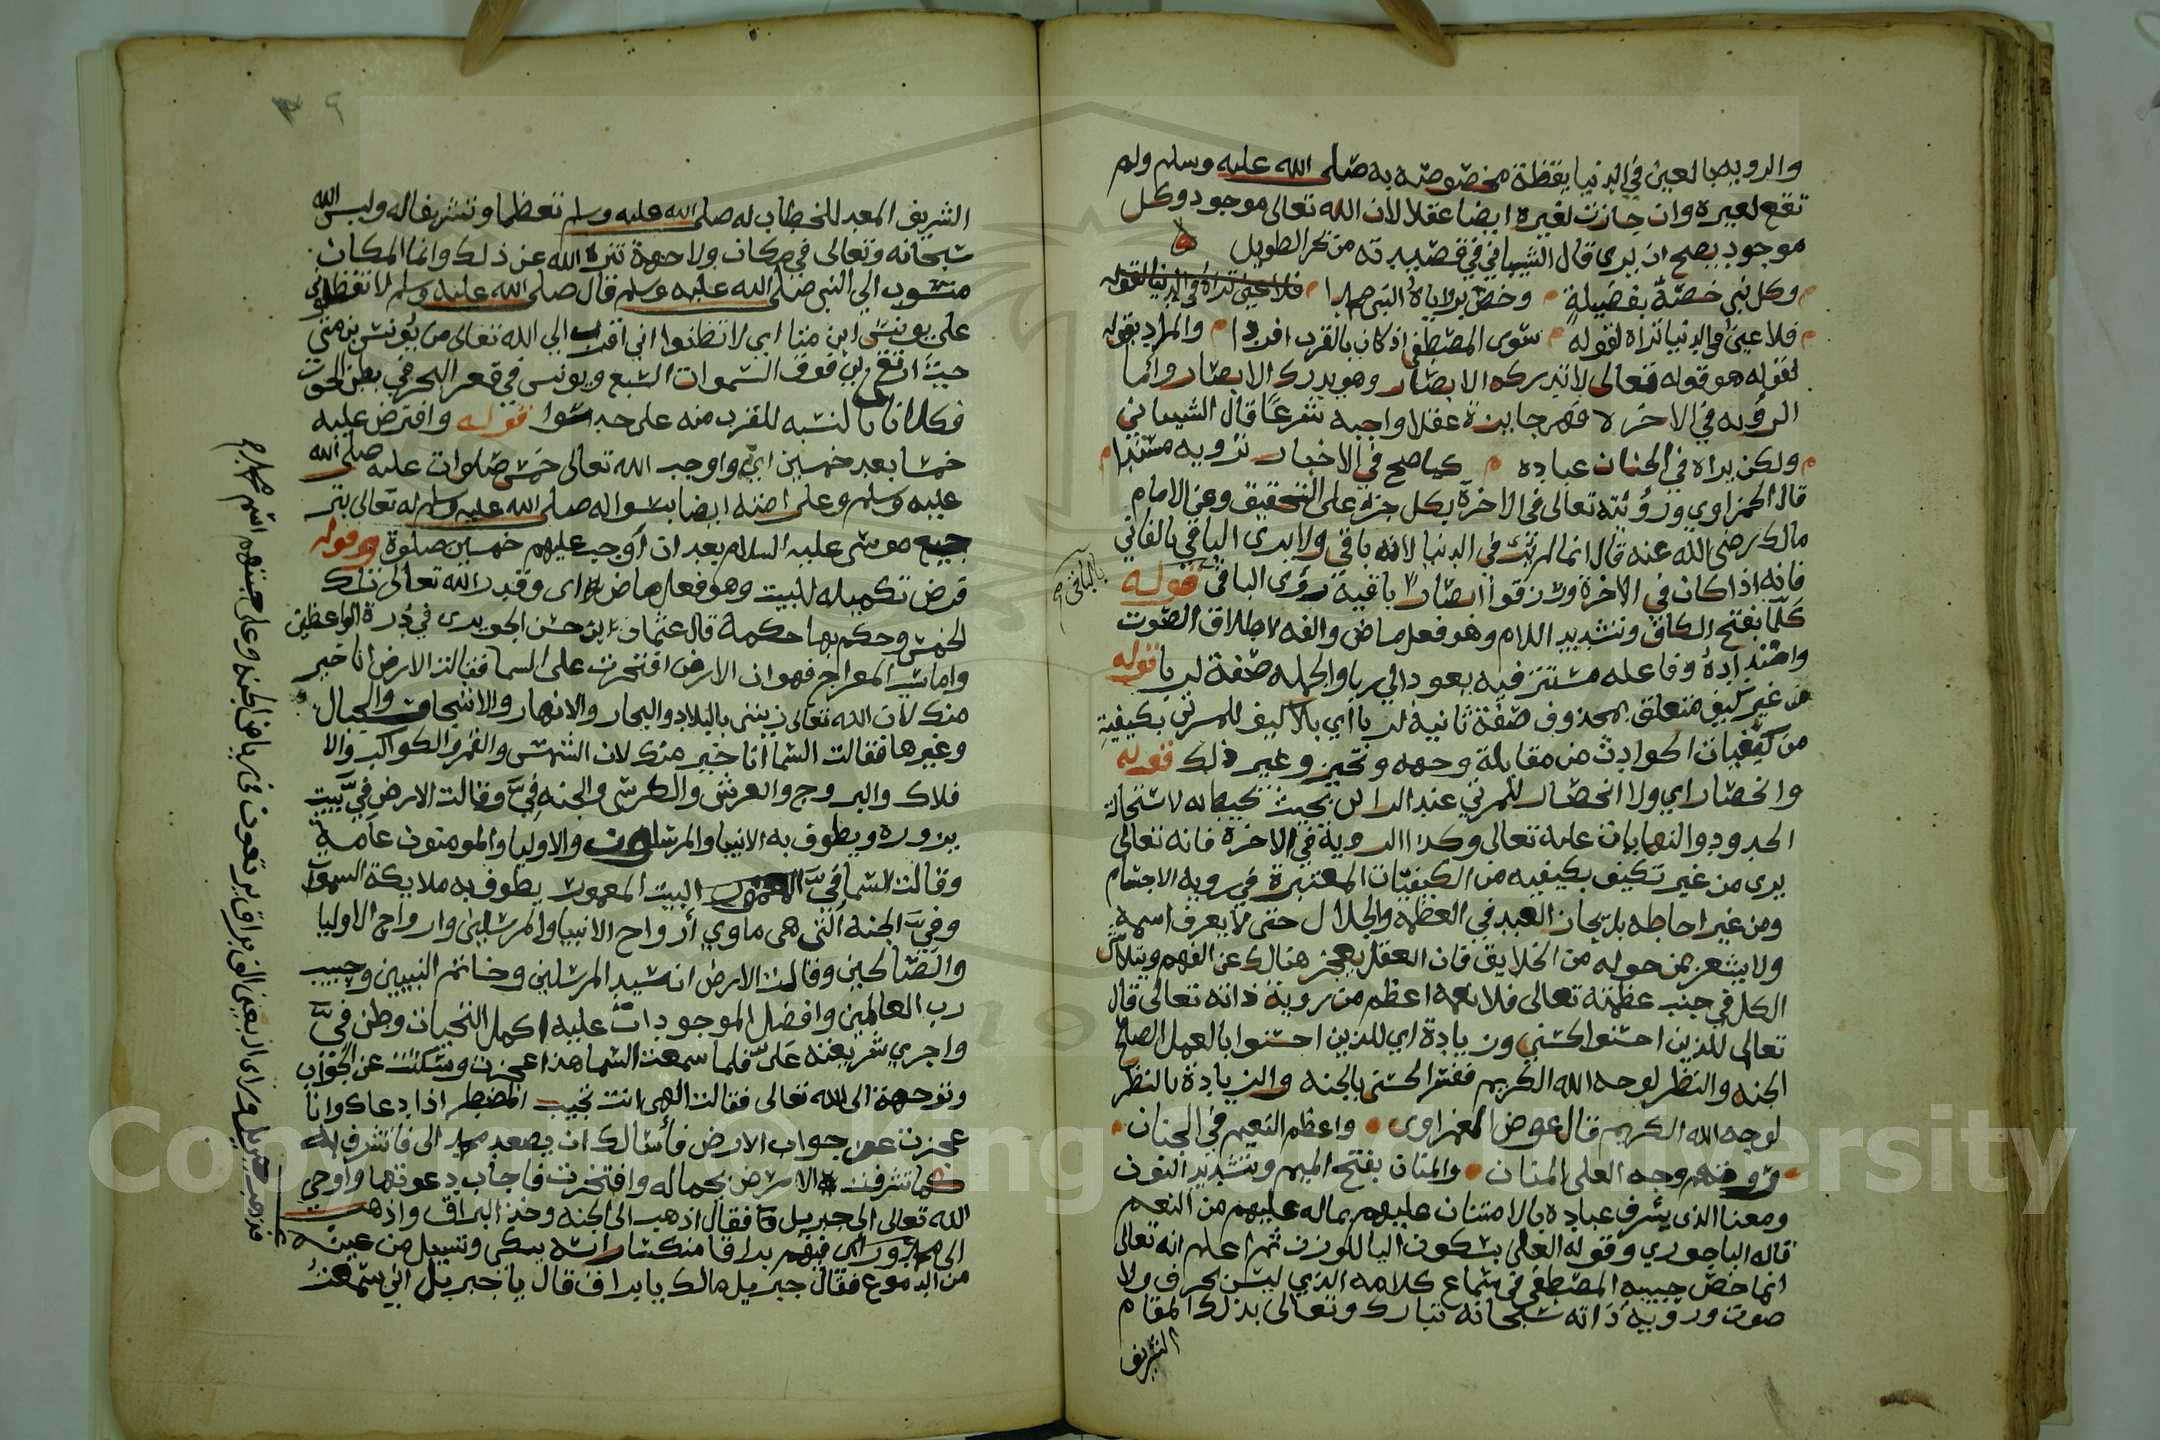 والرويه بالعين في الدنيا يقظة مخصوصه به صلى الله عليه وسلم ولم
تقع لغيره وان جازت لغيره ايضا عقلا لان الله تعالى موجود وكل
موجود يصح ان يرى قال الشيباني في قصيدته من بحر الطويل
وكل نبي خصه بفضيلة وخص برؤياه النبي محمدا فلا عين تراه في الدنيا لقوله
فلا عين في الدنيا تراه لقوله سوى المصطفى اذ كان بالقرب افردا والمراد بقوله
لقوله هو قوله تعالى لا تدركه الابصار وهو يدرك الابصار وانما
الرؤيه في الاخره فهي جايزة عقلا واجبه شرعا قال الشيباني
ولكن يراه في الجنان عباده كما صح في الاخبار نرويه مسندا
قال الحمزاوي ورؤيته تعالى في الاخرة بكل جزء على التحقيق وعن الامام
مالك رضي الله عنه قال انما لم ير في الدنيا لانه باقي ولا يرى الباقي بالفاني
فانه اذا كان في الاخرة ورزقوا ابصارا باقية رؤي الباقي قوله
بالباقي صح
كلما بفتح الكاف وتشديد اللام وهو فعل ماض والفه لاطلاق الصوت
وامتداده وفاعله مستتر فيه يعود الي ربا والجمله صفة لربا قوله
من غير كيف متعلق بمحذوف صفة ثانية لربا اي بلا كيف للمرئي بكيفية
من كيفيات الحوادث من مقابلة وجهه وتحيز وغير ذلك قوله
وانحصار اي ولا انحصار للمرئي عند الرائي بحيث يحيط به لاستحالة
الحدود والنهايات عليه تعالى وكذا الروية في الاخرة فانه تعالى
يرى من غير تكيف بكيفيه من الكيفيات المعتبرة في روية الاجسام
ومن غير احاطه بل يحار العبد في العظمه والجلال حتى لا يعرف اسمه
ولا يشعر بمن حوله من الخلايق فان العقل يعجز هنالك عن الفهم ويتلاشى
الكل في جنب عظمته تعالى فلا نعمه اعظم من روية ذاته تعالى قال
تعالى للذين احسنوا الحسنى وزيادة اي للذين احسنوا بالعمل الصالح
الجنه والنظر لوجه الله الكريم ففسر الحسنى بالجنه والزيادة بالنظر
لوجه الله الكريم قال عوض الغمراوى واعظم النعيم في الجنان
رؤيتهم وجه العلي المنان والمنان بفتح الميم وتشديد النون
ومعنا الذى يشرف عباده بالامتنان عليهم بماله عليهم من النعم
قاله الباجوري وقوله العلي بسكون اليا للوزن ثم اعلم انه تعالى
انما خص حبيبه المصطفى في سماع كلامه الذي ليس بحرف ولا
صوت وروية ذاته سبحانه تبارك وتعالى بذلك المقام
الشريف
الشريف المعد للخطاب له صلى الله عليه وسلم تعظيما وتشريفا له وليس الله
سبحانه وتعالى في مكان ولا جهة تنزه الله عن ذلك وانما المكان
منسوب الي النبي صلى الله عليه وسلم قال صلى الله عليه وسلم لا تفضلوني
على يونس ابن متا اي لا تظنوا اني اقرب الي الله تعالى من يونس بن متى
حيث ارتفع بي فوق السموات السبع ويونس في قعر البحر في بطن الحوت
فكلانا بالنسبه للقرب منه على حد سوا قوله وافترض عليه
خمسا بعد خمسين اي واوجب الله تعالى خمس صلوات عليه صلى الله
عليه وسلم وعلى امته ايضا بسواله صلى الله عليه وسلم له تعالى بتر
جيع موسى عليه السلام بعد ان اوجب عليهم خمسين صلوة وقوله
قدر تكميله للبيت وهو فعل ماض اى وقدر الله تعالى تلك
الخمس وحكم بها حكمة قال عثمان بن حسن الجوبرى في درة الواعظين
واما سبب المعراج فهو ان الارض افتخرت على السما فقالت الارض انا خير
منك لان الله تعالى زينني بالبلاد والبحار والانهار والاشجار والجبال
وغيرها فقالت السما انا خير منك لان الشمس والقمر والكواكب والا
فلاك والبروج والعرش والكرسي والجنه في وقالت الارض في بيت
يزوره ويطوف به الانبيا والمرسلون والاوليا والمومنون عامة
وقالت السما في البيت المعمور يطوف به ملايكة السموات
وفي الجنه التي هي ماوي أرواح الانبيا والمرسلين وارواح الاوليا
والصالحين وقالت الارض انه سيد المرسلين وخاتم النبيين وحبيب
رب العالمين وافضل الموجودات عليه اكمل التحيات وطن في
واجري شريعته علي فلما سمعت السما هذا عجزت وسكتت عن الجواب
وتوجهة الى الله تعالى فقالت الهي انت تجيب المضطر اذا دعاك وانا
عجزت عن جواب الارض فأسالك ان يصعد محمد الى فاتشرف به
كما تشرفت الارض بجماله وافتخرت فاجاب دعوتها واوحي
الله تعالى الى جبريل فقال اذهب الى الجنه وخذ البراق واذهب
الى محمد وراى فيهم براقا منكسا راسه يبكي وتسيل من عينيه
من الدموع فقال جبريل مالك يا براق قال يا جبريل اني سمعت
فذهب جبريل فراى اربعين الف براق يرتعون في رياض الجنه وعلى جبهتهم اسم محمد صح